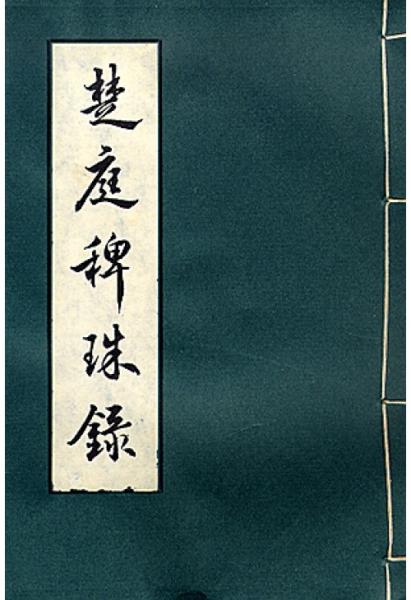 楚庭稗珠錄